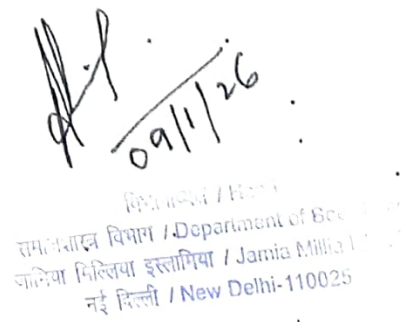 09/1/26
विभागाध्यक्ष / H
समाजशास्त्र विभाग / Department of
जामिया मिल्लिया इस्लामिया / Jamia Millia
नई दिल्ली / New Delhi-110025